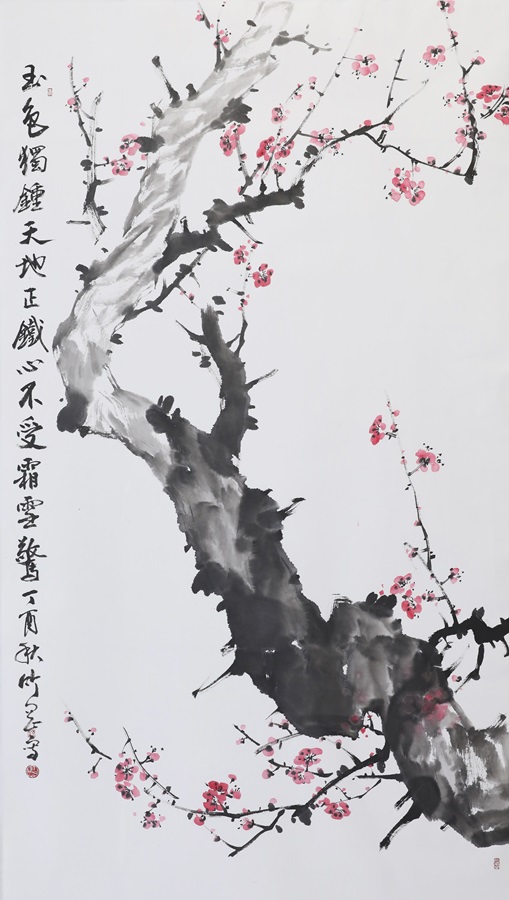 玉色獨鍾天地正鐵心不受霜雪驚丁酉秋竹